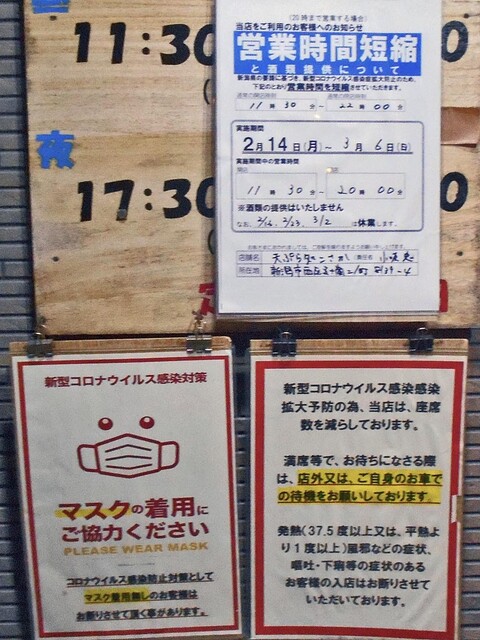 11:30
夜
17:30
(20時まで営業する場合)
当店をご利用のお客様へのお知らせ
営業時間短縮
と酒類提供について
新潟県の要請に基づき、新型コロナウイルス感染拡大防止のため、
下記のとおり営業時間を短縮させていただきます。
11時30分~22時00分
実施期間
2月14日(月)~3月6日(日)
実施期間中の営業時間
11時30分~20時00分
※酒類の提供はいたしません
なお、2/16、2/23、3/2は休業します。
店舗名
所在地
新型コロナウイルス感染対策
マスクの着用に
ご協力ください
PLEASE WEAR MASK
コロナウイルス感染防止対策として
マスク着用無しのお客様は
お断りさせて頂く事があります。
新型コロナウイルス感染感染
拡大予防の為、当店は、座席
数を減らしております。
満席等で、お待ちになさる際
は、店外又は、ご自身のお車で
の待機をお願いしております。
発熱(37.5度以上又は、平熱よ
り1度以上)風邪などの症状、
嘔吐・下痢等の症状のある
お客様の入店はお断りさせて
いただいております。